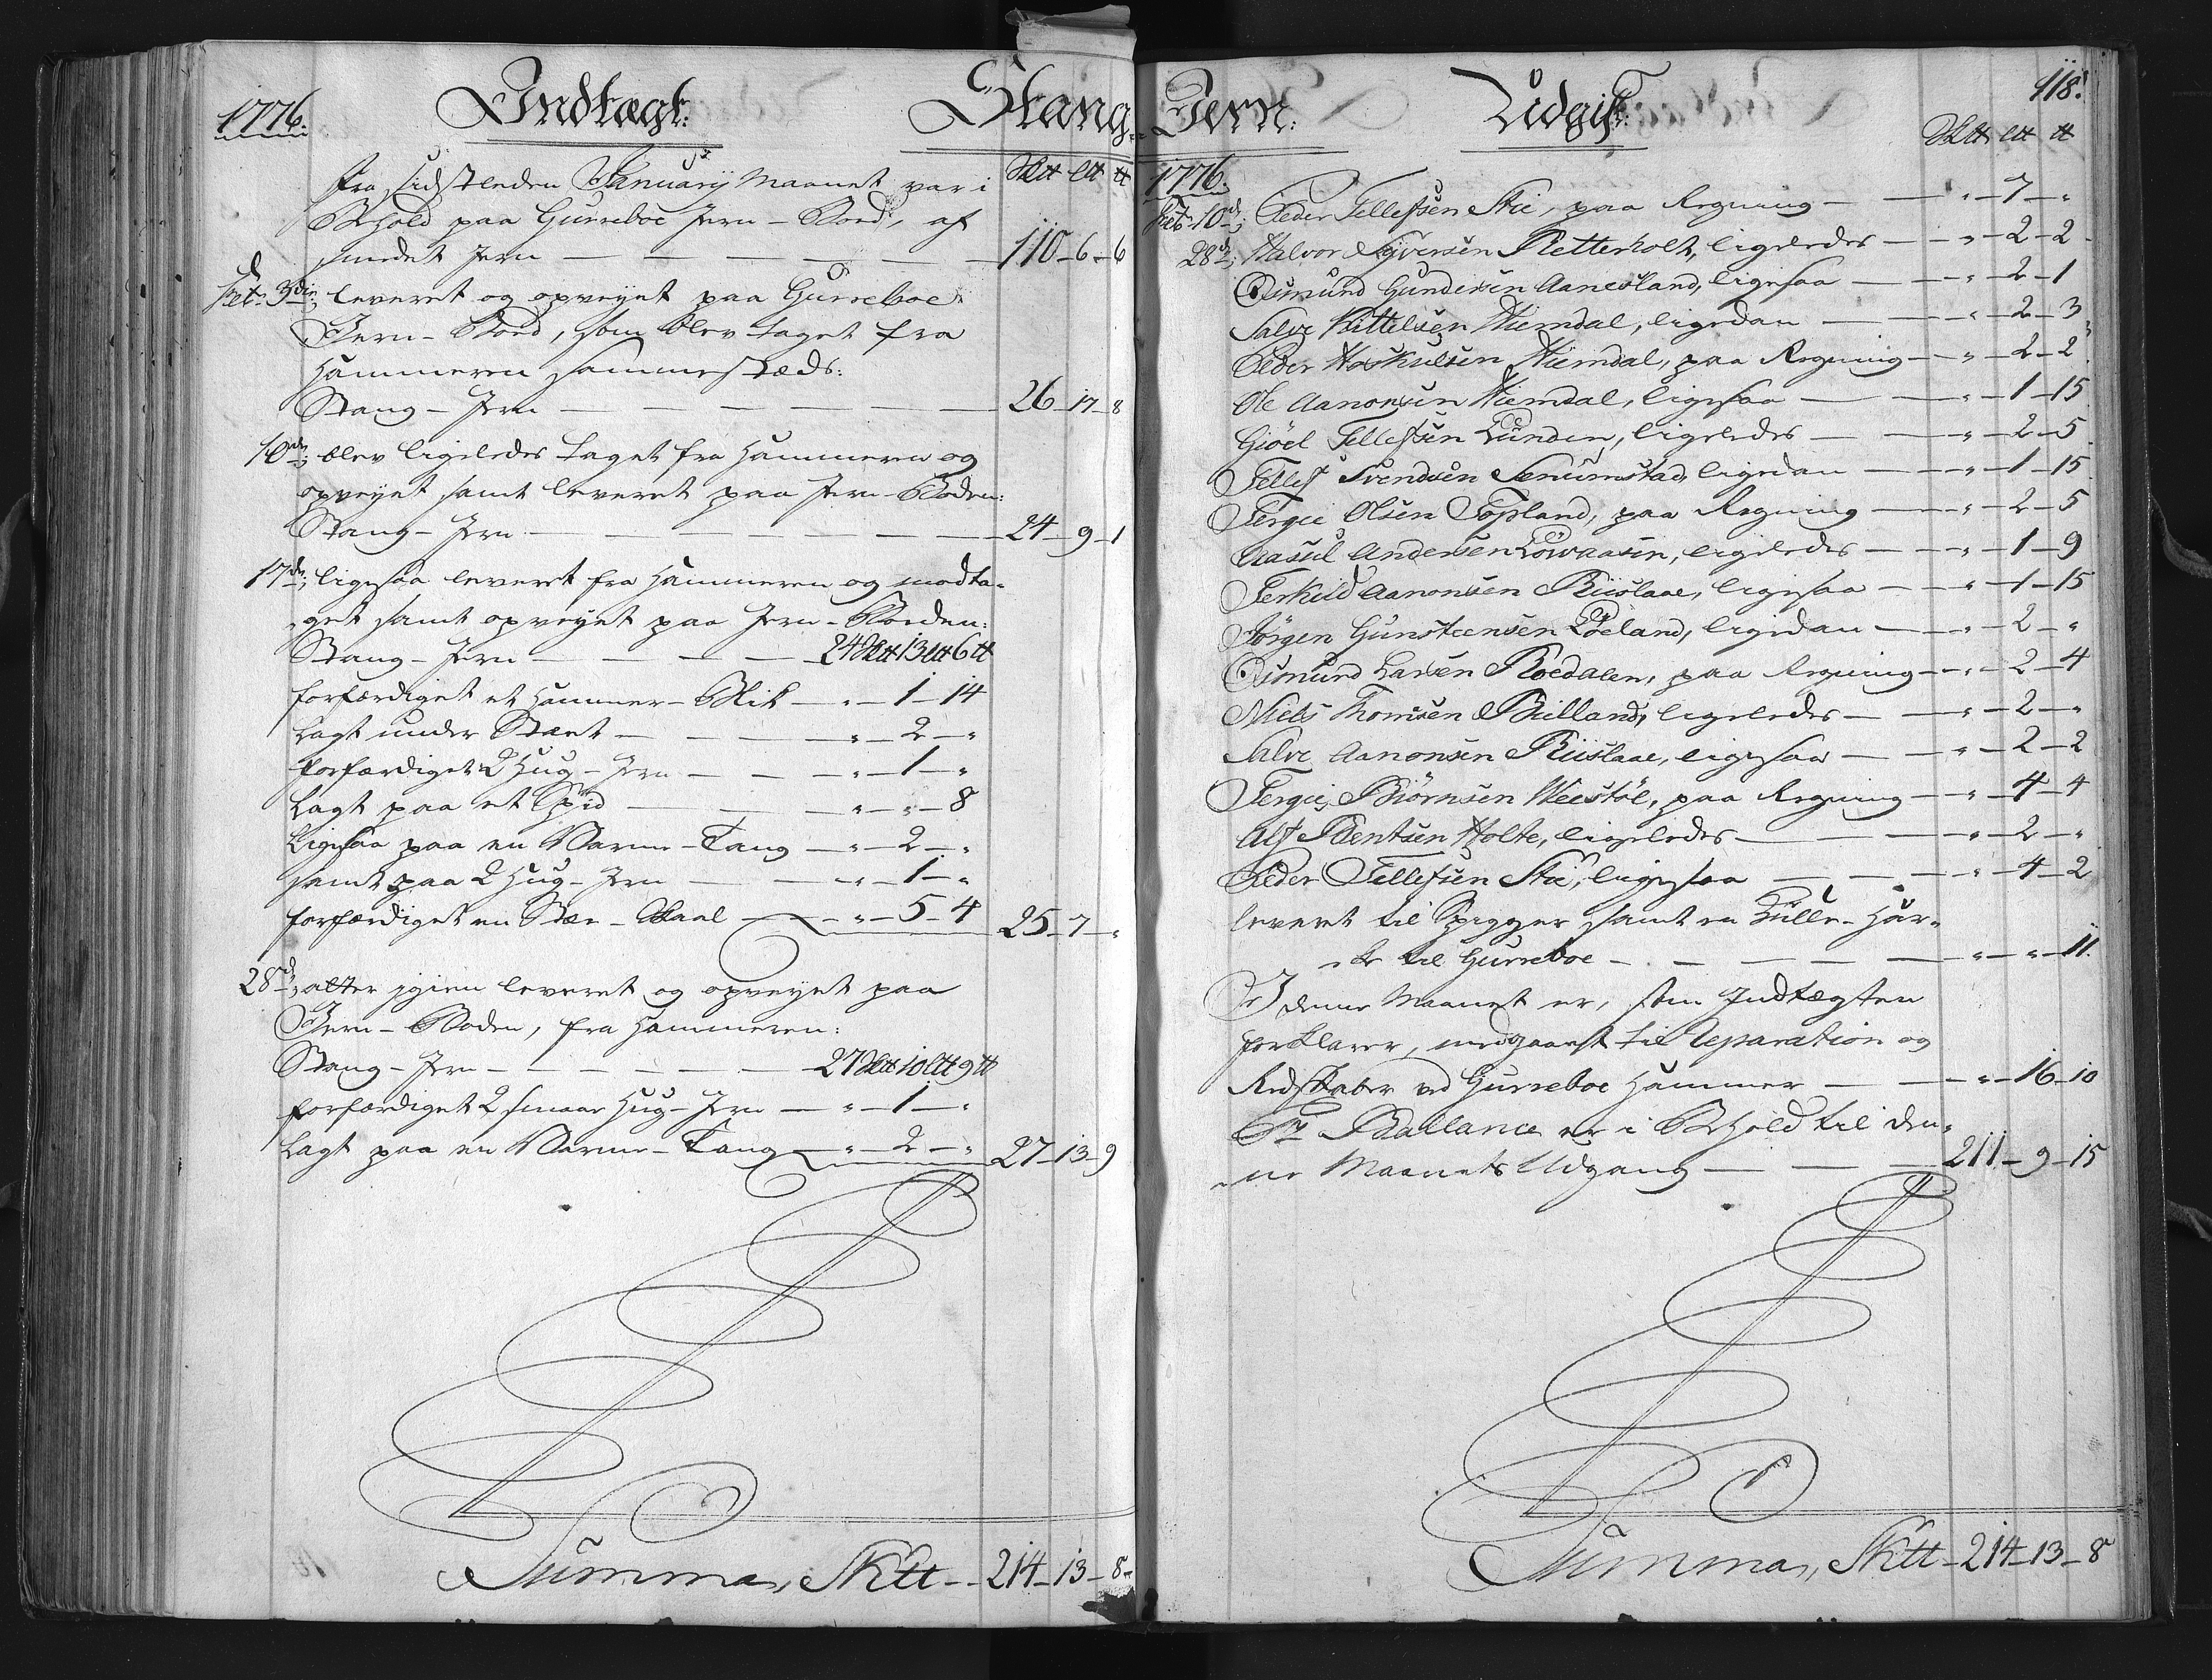 1776. Indtægt: Stang-
Sktt Ltt tt
Fra sidstleden January Maanet var i
Behold paa Gurreboe Jern-Boed, af
smedet Jern — 110-6-6
Febr: 3die; leveret og opveyet paa Gurreboe
Jern-Boed, som blev taget fra
Hammeren sammesteds:
Stang-Jern — 26-17-8
10de; blev ligeledes taget fra Hammeren og
opveyet samt leveret paa Jern-Boden:
Stang-Jern — 24-9-1
17de; ligesaa leveret fra Hammeren og modta-
get samt opveyet paa Jern-Boeden:
Stang-Jern — 24Sktt 13Ltt 6tt
forfærdiget et Hammer-Blik — „-1-14
Lagt under Stæet — „-2-„
forfærdiget 2 Hug-Jern — „-1-„
Lagt paa et Spid — „-„-8
Ligesaa paa en Varme-Tang — „-2-„
samt paa 2 Hug-Jern — „-1-„
forfærdiget en Stær-Skaal — „-5-4 25-7-„
28de; atter igien leveret og opveyet paa
Jern-Boden, fra Hammeren:
Stang-Jern — 27Sktt 10Ltt 9tt
forfærdiget 2 smaae Hug-Jern — „-1-„
Lagt paa en Varme-Tang — „-2-„ 27-13-9
Summa, Sktt - 214-13-8
Jern: Udgift: 118.
Sktt Ltt tt
1776.
Febr: 10de; Peder Tellefsen Stie, paa Regning — „-7-„
28de; Halvor Syversen Retterholt, ligeledes — „-2-2
Osmund Gundersen Aanesland, ligesaa — „-2-1
Salve Kittelsen Hiemdal, ligedan — „-2-3
Peder Hoskulsen Hiemdal, paa Regning — „-2-2
Ole Aanonsen Hiemdal, ligesaa — „-1-15
Giöel Tellefsen Lunden, ligeledes — „-2-5
Tellef Svendsen Senumstad, ligedan — „-1-15
Tergie Olsen Topland, paa Regning — „-2-5
Aasul Andersen Löwaasen, ligeledes — „-1-9
Terkild Aanonsen Riislaae, ligesaa — „-1-15
Jörgen Gunsteensen Löeland, ligedan — „-2-„
Osmund Larsen Roedalen, paa Regning — „-2-4
Niels Thomsen Bielland, ligeledes — „-2-„
Salve Aanonsen Riislaae, ligesaa — „-2-2
Tergie Biörnsen Weestöl, paa Regning — „-4-4
Alf Bentsen Holte, ligeledes — „-2-„
Peder Tellefsen Stie, ligesaa — „-4-2
leveret til Spigger samt en Kulle-Har-
ke til Gurreboe — „-„-11.
I denne Maanet er, som Indtægten
forklarer, medgaaet til Reparation og
Redskaber ved Gurreboe Hammer — „-16-10
Pr Ballance er i Behold til den-
ne Maanets Udgang — 211-9-15
Summa, Sktt - 214-13-8